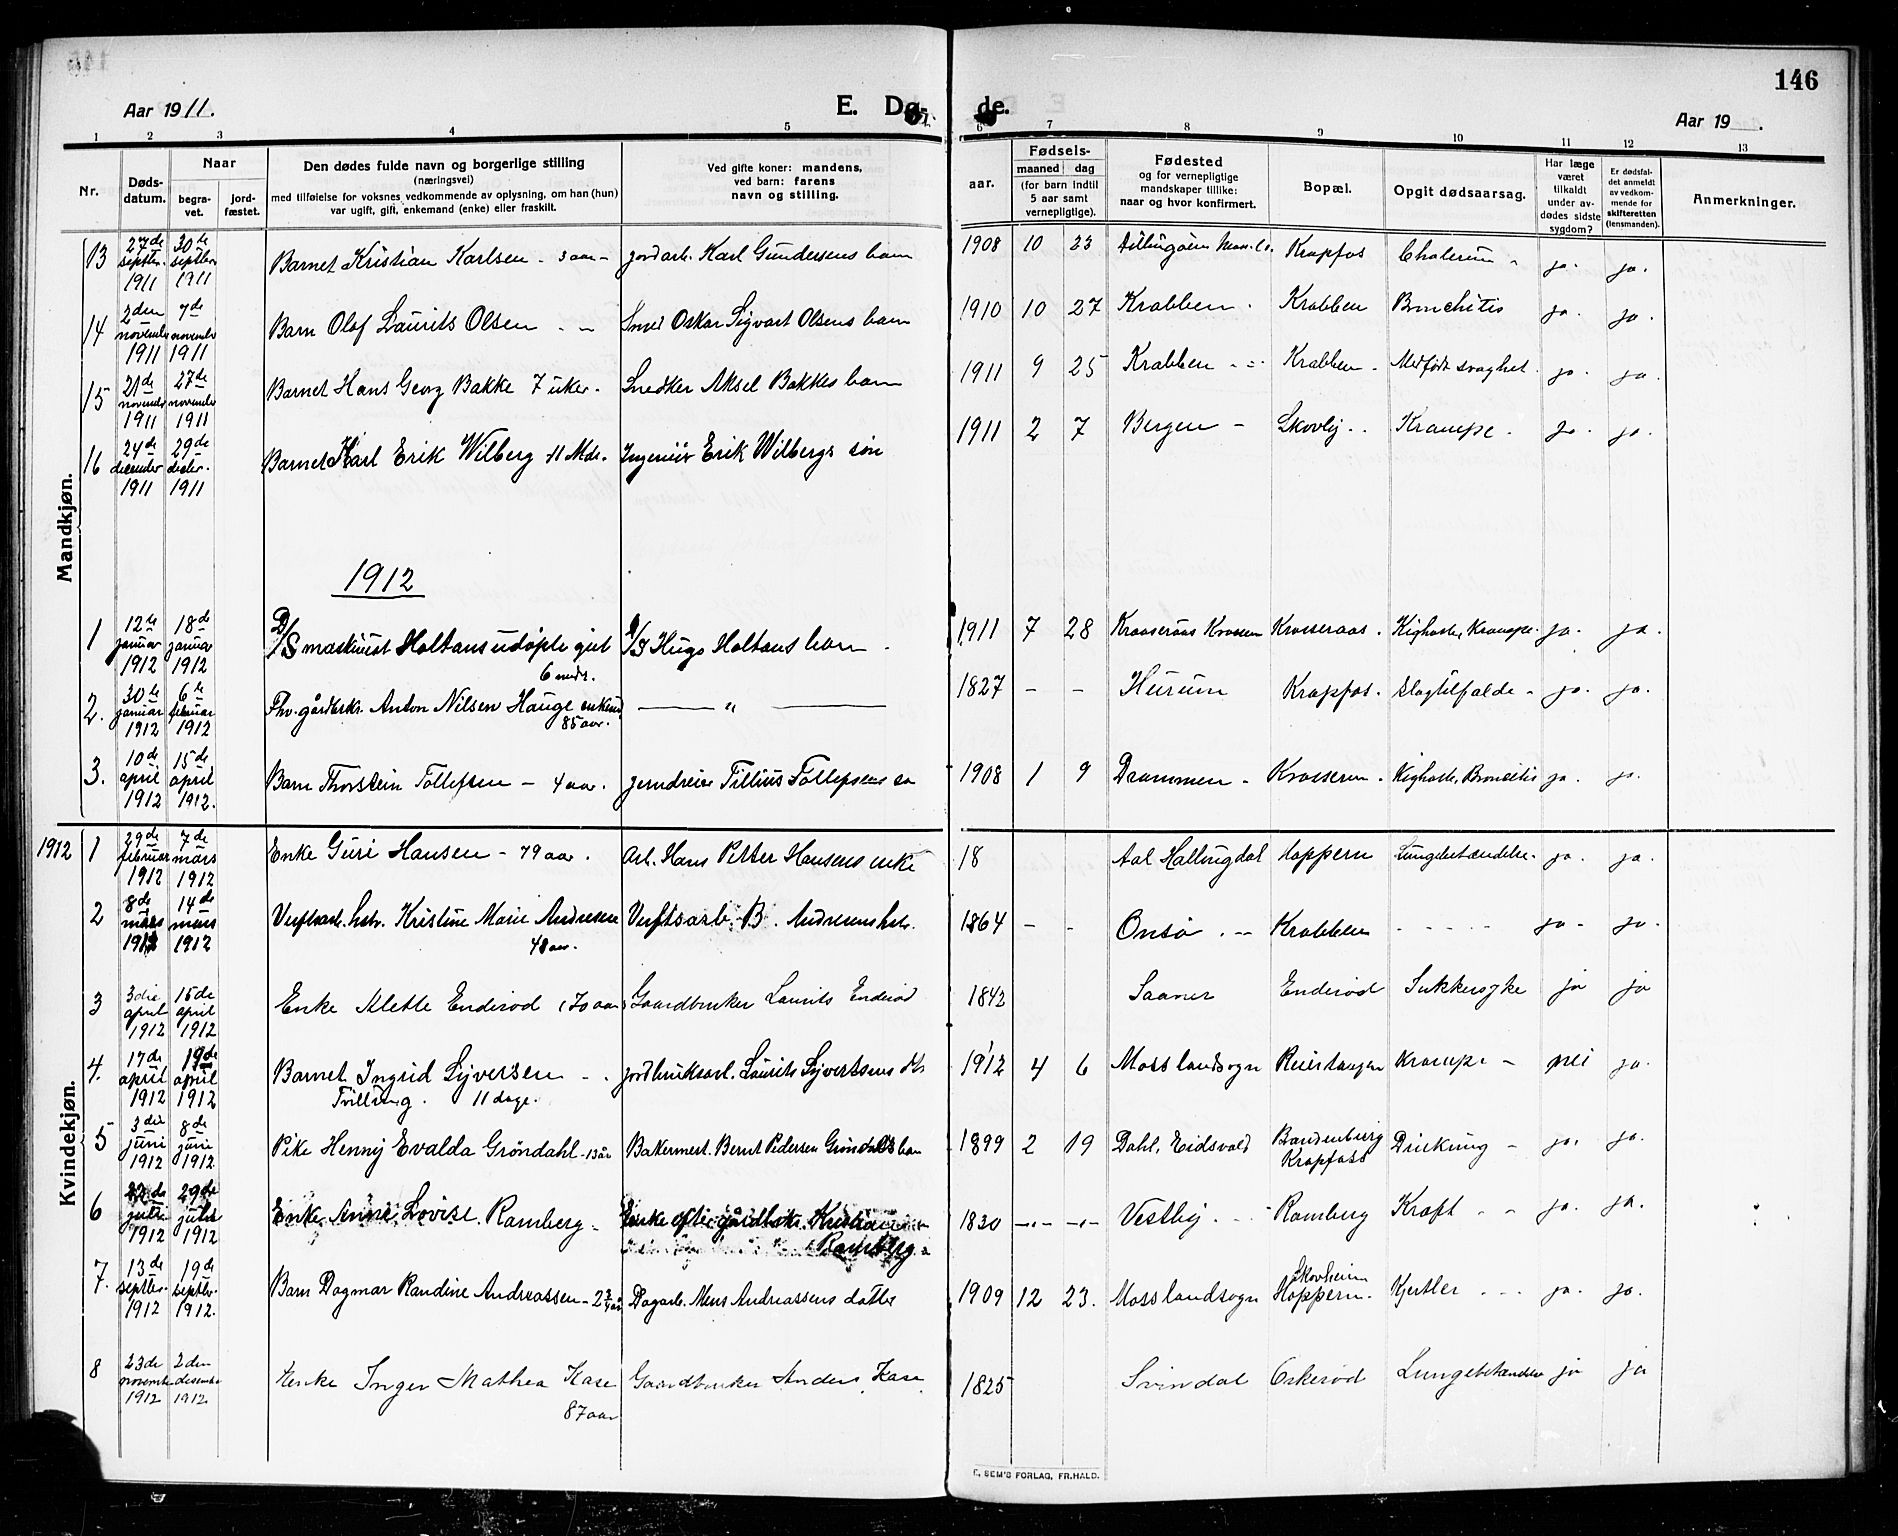 146
Aar 1911.
E. Dø-
de.
Aar 19   .
1 2 3 4 5 6 7 8 9 10 11 12 13
Nr.
Døds-
datum.
Naar
begra-
vet.
jord-
fæstet.
Den dødes fulde navn og borgerlige stilling
(næringsvei)
med tilføielse for voksnes vedkommende av oplysning, om han (hun)
var ugift, gift, enkemand (enke) eller fraskilt.
Ved gifte koner: mandens,
ved barn: farens
navn og stilling.
Fødsels-
aar.
maaned dag
(for barn indtil
5 aar samt
vernepligtige).
Fødested
og for vernepligtige
mandskaper tillike:
naar og hvor konfirmert.
Bopæl.
Opgit dødsaarsag.
Har læge
været
tilkaldt
under av-
dødes sidste
sygdom?
Er dødsfal-
det anmeldt
av vedkom-
mende for
skifteretten
(lensmanden).
Anmerkninger.
Mandkjøn.
13 27de septbr. 1911 30te septbr 1911 Barnet Kristian Karlsen - 3 aar - jordarb. Karl Gundersens barn 1908 10 23 Krapfos Cholerin - ja. ja.
14 2den november 1911 7de november 1911 Barn Olaf Laurits Olsen - - Smed Oskar Sigvart Olsens barn 1910 10 27 Krabben . Krabben Bronchitis ja. ja.
15 21de november 1911 27de november 1911 Barnet Hans Georg Bakke 7 uker. Snedker Aksel Bakkes barn 1911 9 25 Krabben - Krabben - Medfødt svaghet. ja. ja.
16 24de december 1911 29de decbr. 1911 Barnet Karl Erik Wilberg 11 Mdr. Ingeniør Erik Wilbergs søn 1911 2 7 Bergen - Skovly . . Krampe. ja. ja.
1912
1 12te januar 1912 18de januar 1912 D/S maskinist Holtans udøpte gut 6 mdr. D/S Hugo Holtans barn . 1911 7 28 Krosseraas . Kighoste, Krampe. ja. ja.
2. 30te januar 1912 6te februar 1912 Fhv. gårdbrkr. Anton Nilsen Hauge enkem. 85 aar. — „ — 1827 - - Hurum Krapfos. Slagtilfælde - ja. ja.
3. 10de april 1912 15de april 1912. Barn Thorstein Tollefsen - 4 aar. jerndreier Tillius Tollefsens 1908 1 9 Drammen - Krosseren . Kighoste, Bronkitis ja. ja.
Kvindekjøn.
1912 1 29de februar 1912 7de mars 1912 Enke Guri Hansen - 79 aar. Arb. Hans Petter Hansens enke 18 Aal Hallingdal Noppern Lungebetændelse. ja. ja.
2 8de mars 1912 14de mars 1912 Verftsarb. hstr. Kristine Marie Andresen 48 aar. Verftsarb. B. Andresens hstr. 1864 - - Onsø . - Krabben - - - - - ja - ja.
3 3die april 1912 15de april 1912 Enke Alette Enderød (70 aar) Gaardbruker Laurits Enderød 1842 Saaner Enderød Sukkersyke ja ja
4. 17de april 1912 19de april 1912 Barnet Ingrid Syversen - . Tvilling. 11 dage. jordbruksarb. Laurits Syvertsens dtr 1912 4 6 Moss landsogn Reiertangen Krampe - nei ja.
5 3die juni 1912 8de juni 1912 Pike Henny Evalda Grøndahl - 13 år Bakermest. Bernt Pedersen Grøndahls barn 1899 2 19 Dahl, Eidsvold Brandenburg Krapfoss - ja. ja.
6 1912 29de 1912 Enke Anne Lovise Ramberg - Enke efter gårdbrkr. Kristian Ramberg - 1830 -"- -"- Vestby . - Ramberg Kræft - - ja. ja.
7. 13de septbr. 1912 19de septbr. 1912. Barn Dagmar Randine Andreassen - Dagarb. Mens Andreassens datter 1909 12 23. Moss landsogn Skovheim Noppern. Kjertler - - - ja. ja.
8 23de november 1912 2den desember 1912 Henke Inger Mathea Kase 87 aar Gaardbruker Anders Kase 1825 Svindal Orkerød Lungebetændelse ja ja
E. SEM'S FORLAG, FR.HALD.